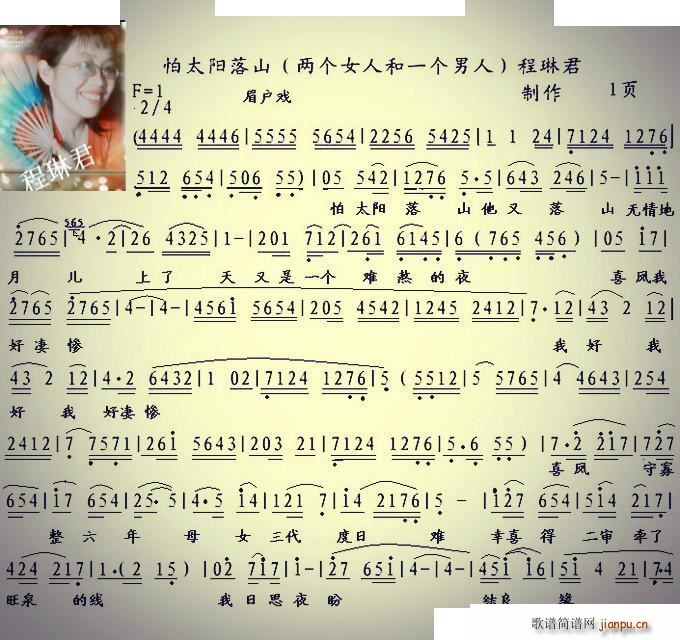 怕太阳落山（两个女人和一个男人）程琳君
F=1 眉户戏 制作 1页
2/4
程琳君
(4444 4446|5555 5654|2256 5425|1 1 24|7124 1276|
512 654|506 55)|05 542|1276 5·5|643 246|5-|111
怕 太阳 落 山 他 又 落 山 无情地
2765|4·2|26 4325|1-|201 712|261 6145|6 (765 456)|05 17|
月 儿 上 了 天 又 是 一个 难 熬 的 夜 喜 凤 我
2765 2765|4-|4-|4561 5654|205 4542|1245 2412|7·12|43 2 12|
好 凄 惨 我 好 我
43 2 12|4·2 6432|1 02|7124 1276|5 (5512|5 5765|4 4643|254
好 我 好凄 惨
2412|7 7571|261 5643|203 21|7124 1276|5·6 55)|7·2 217|727
喜 凤 守寡
654|17 654|25·5|4·5 14|121 7|14 2176|5-|127 654|514 217|
整 六 年 母 女 三代 度日 难 幸喜 得 二审 牵了
424 217|1·(2 15)|02 717|1-|27 651|4-|4-|451 16|51 421|7·4
旺泉 的线 我 日 思 夜 盼 结良 缘
歌谱简谱网
jianpu.cn